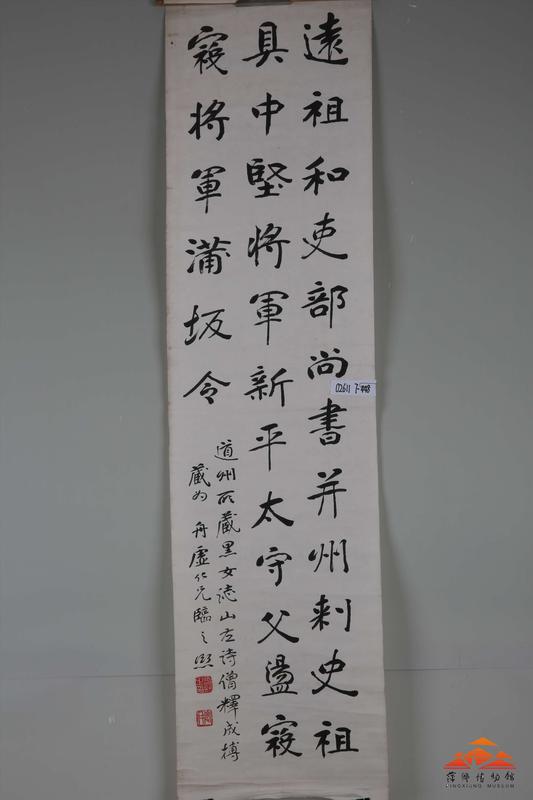 遠祖和吏部尚書并州刺史祖
具中堅將軍新平太守父盪寇
寇將軍蒲坂令
道州所藏黑女誌山左詩僧釋成摶
藏為 舟虛仁兄臨之 熙
萍鄉博物館
PINGXIANG MUSEUM